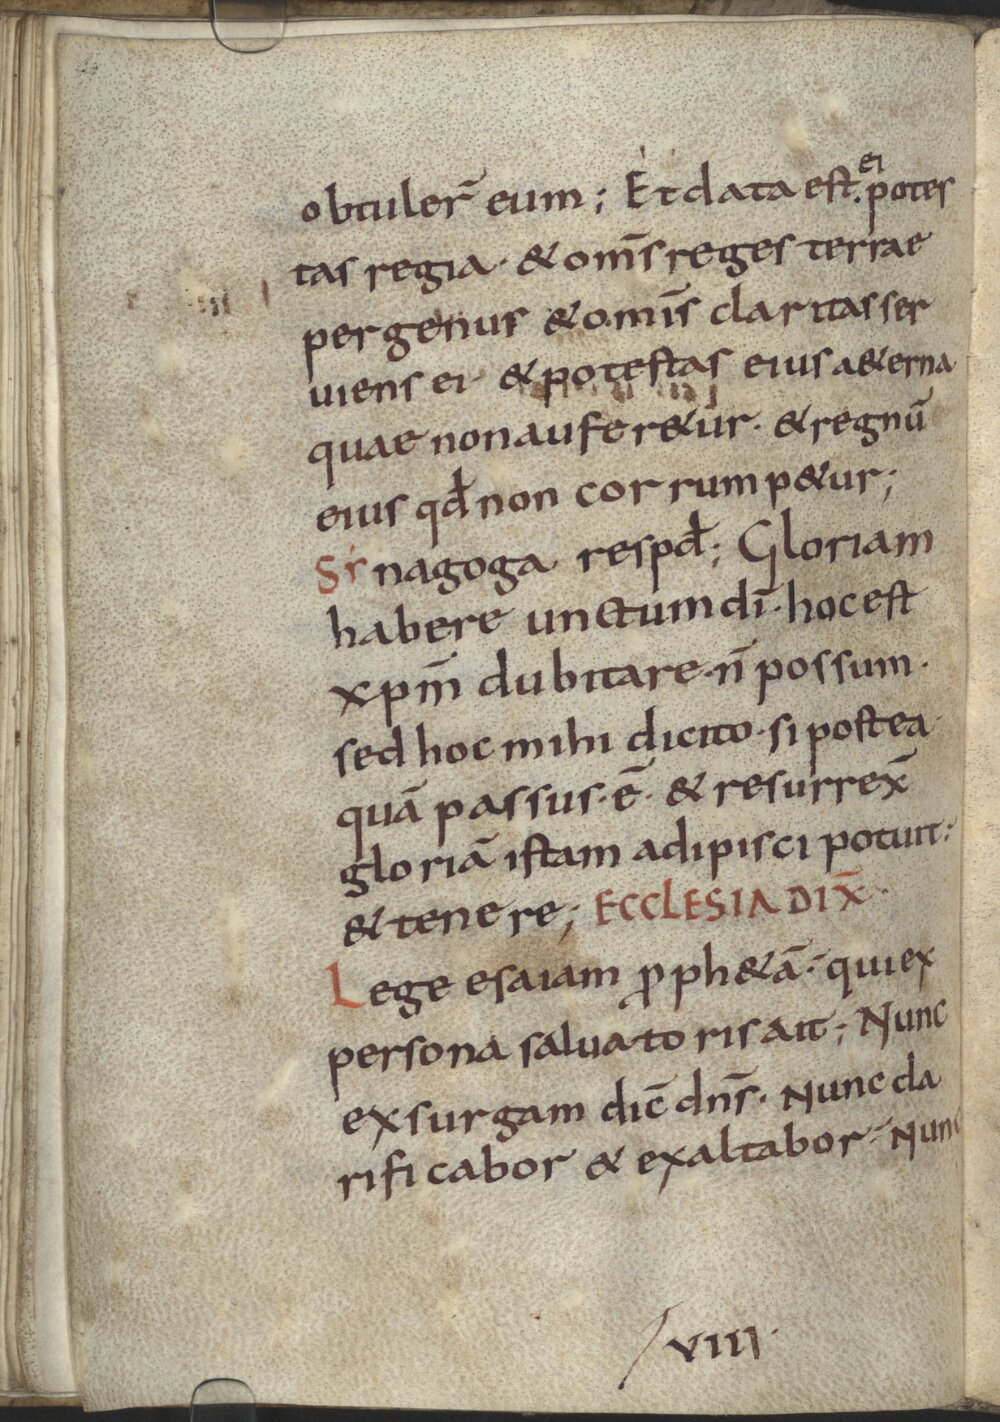 obtuler̄ eum; Et data est. ei potes
tas regia · & om̄s reges terrae
per genus & omīs claritas ser
uiens ei · & potestas eius a&erna
quae non aufer&ur · & regnū
eius qđ non corrump&ur;
Synagoga respđ; Gloriam
habere unctum dī · hoc est
xp̄m dubitare · n̄ possum ·
sed hoc mihi dicito · si postea
quā passus · ē · & resurrex̄
gloriā istam adipisci potuit:
& tenere; ECCLESIA DIX̄ ·
Lege esaiam ꝓph&ā · qui ex
persona saluatoris ait; Nunc
exsurgam dic̄ dn̄s · Nunc cla
rificabor & exaltabor · Nunc
VIII ·